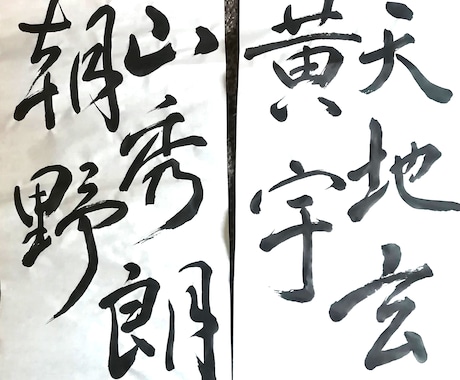 天地玄
黄宇
山秀朗
朝野